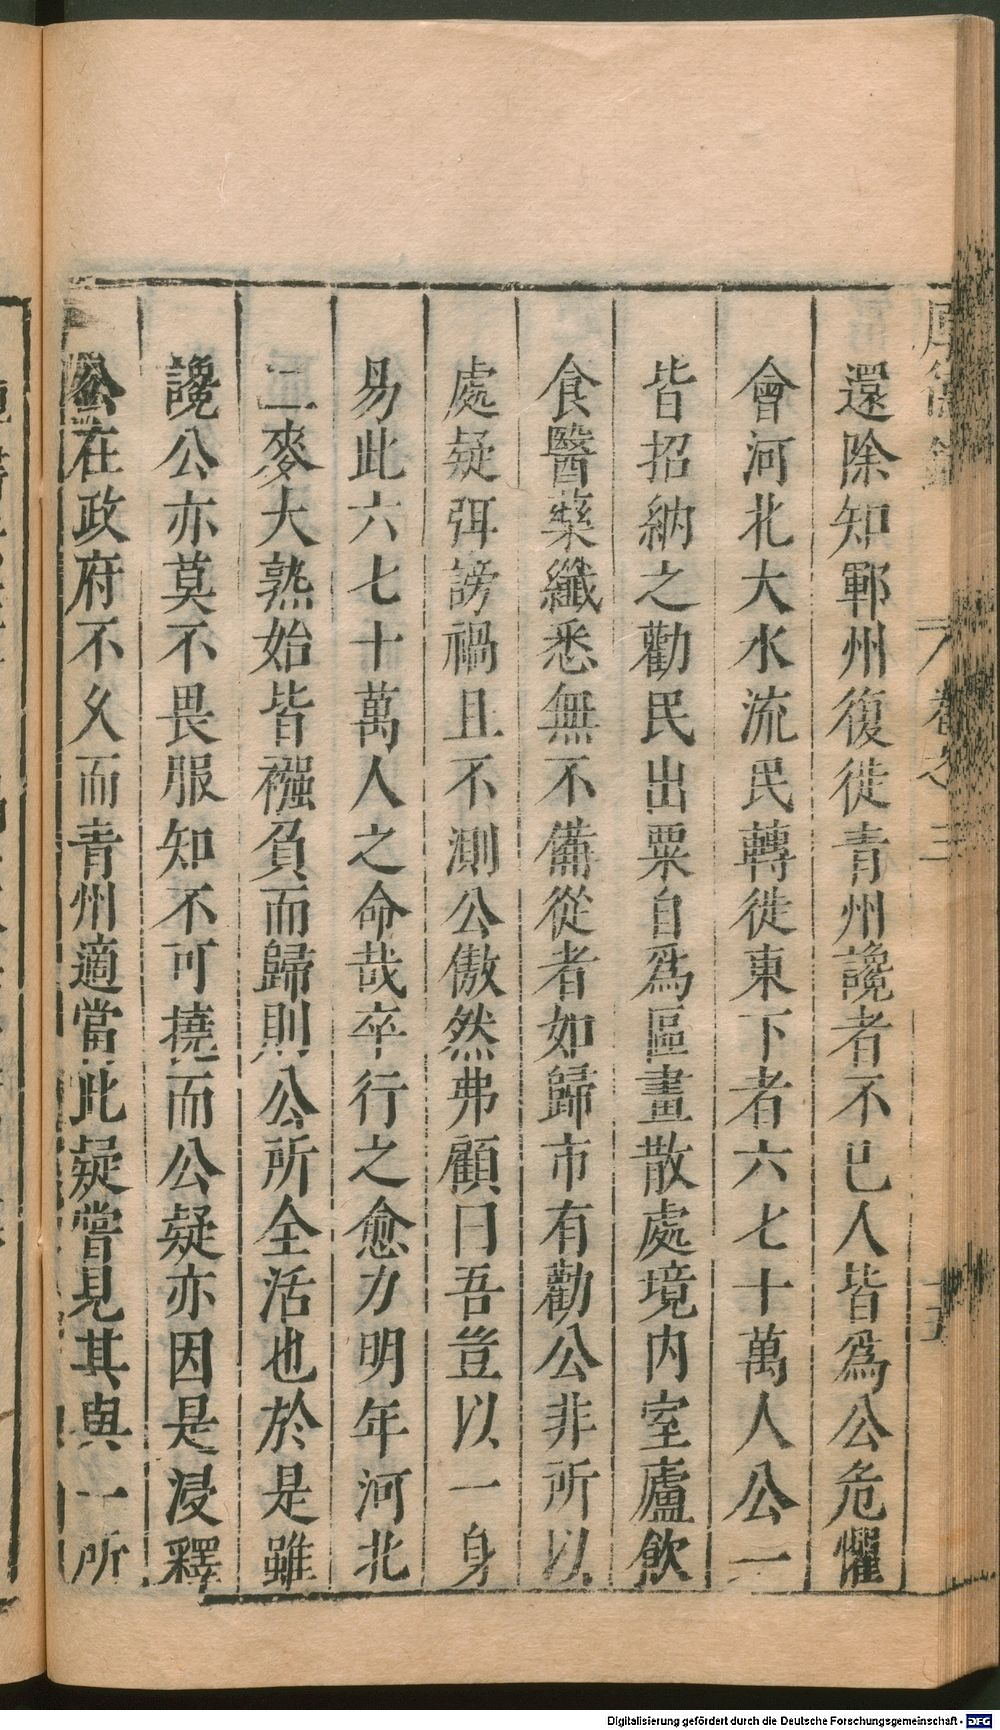 還除知鄆州復徙青州讒者不已人皆爲公危懼
會河北大水流民轉徙東下者六七十萬人公一
皆招納之勸民出粟自爲區畫散處境内室廬飲
食醫藥纖悉無不備從者如歸市有勸公非所以
處疑弭謗禍且不測公傲然弗顧曰吾豈以一身
易此六七十萬人之命哉卒行之愈力明年河北
二麥大熟始皆襁負而歸則公所全活也於是雖
讒公亦莫不畏服知不可撓而公疑亦因是浸釋
公在政府不久而青州適當此疑嘗見其與一所
卷之三
Digitalisierung gefördert durch die Deutsche Forschungsgemeinschaft - DFG